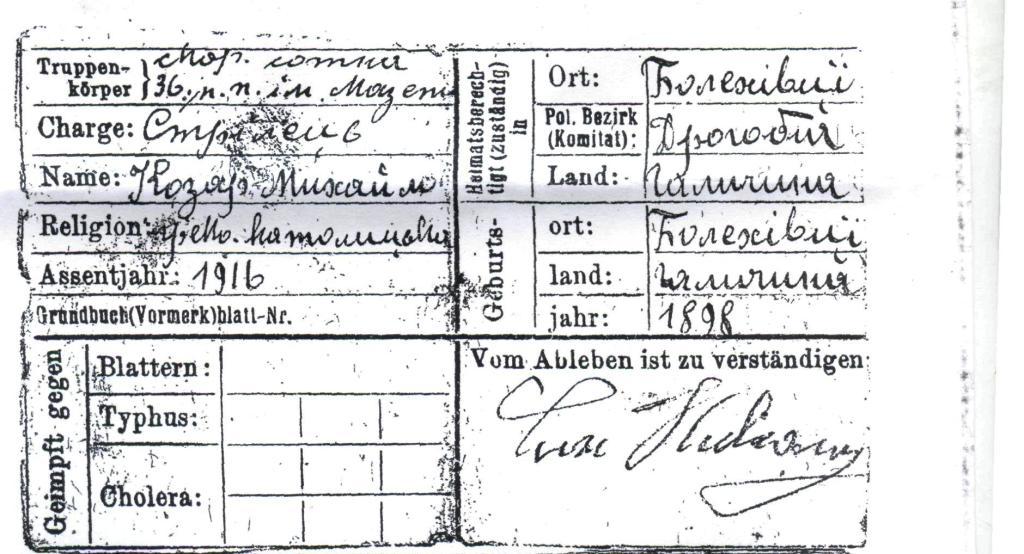 Truppen-
körper
сотня
36. п. п. ім. Мазепи
Charge: Стрілець
Name: Козар Михайло
Religion: греко. католицька
Assentjahr: 1916
Grundbuch(Vormerk)blatt-Nr.
Heimatsberech-
tigt (zuständig)
in
Ort: Болехівці
Pol. Bezirk
(Komitat): Дрогобич
Land: Галичина
Geburts-
ort: Болехівці
land: Галичина
jahr: 1898
Geimpft gegen
Blattern:
Typhus:
Cholera:
Vom Ableben ist zu verständigen: